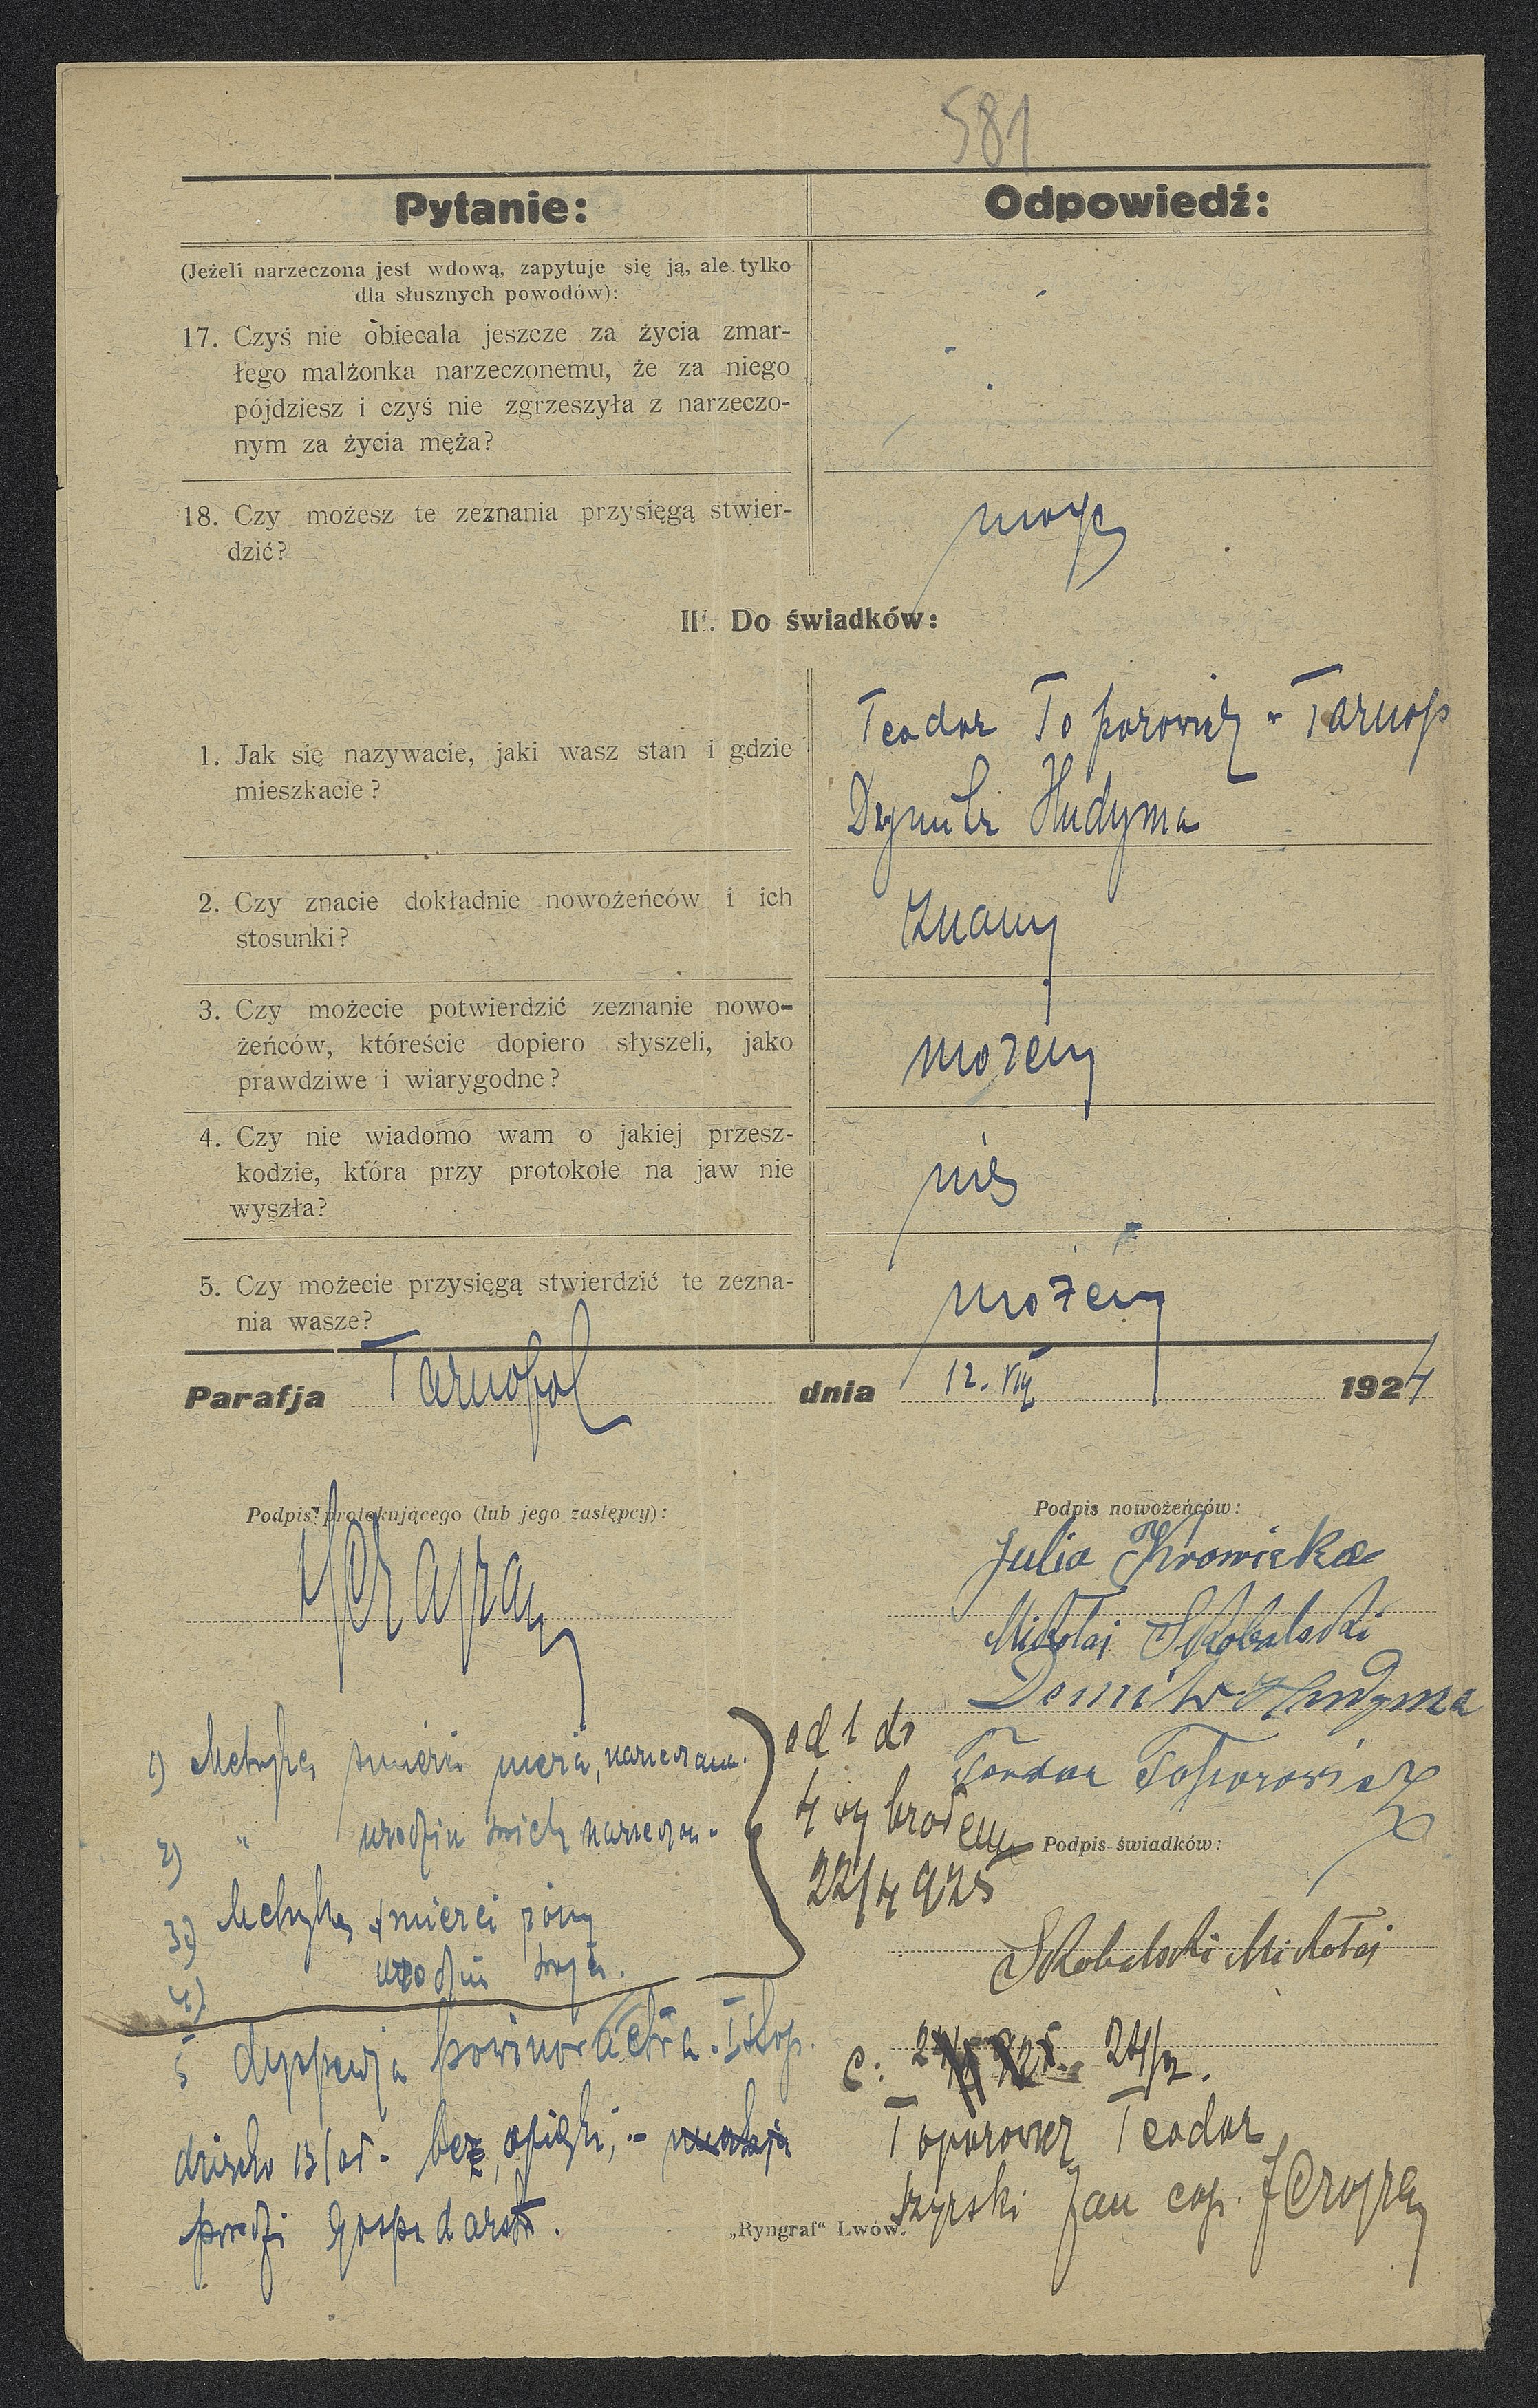 581
Pytanie:
Odpowiedź:
(Jeżeli narzeczona jest wdową, zapytuje się ją, ale tylko
dla słusznych powodów):
17. Czyś nie obiecała jeszcze za życia zmar-
łego małżonka narzeczonemu, że za niego
pójdziesz i czyś nie zgrzeszyła z narzeczo-
nym za życia męża?
18. Czy możesz te zeznania przysięgą stwier-
dzić?
mogę
III. Do świadków:
1. Jak się nazywacie, jaki wasz stan i gdzie
mieszkacie?
Teodor Toporowicz - Tarnop
Dzmitr Hudyma
2. Czy znacie dokładnie nowożeńców i ich
stosunki?
znamy
3. Czy możecie potwierdzić zeznanie nowo-
żeńców, któreście dopiero słyszeli, jako
prawdziwe i wiarygodne?
możemy
4. Czy nie wiadomo wam o jakiej przesz-
kodzie, która przy protokole na jaw nie
wyszła?
nie
5. Czy możecie przysięgą stwierdzić te zezna-
nia wasze?
możemy
Parafja Tarnopol dnia 12. VII 1924
Podpis protokującego (lub jego zastępcy):
Podpis nowożeńców:
Julia Krowicka
Mikołaj Skobalski
Demitr Hudyma
Teodor Toporowicz
Podpis świadków:
1) Metryka śmierci męża, narzeczon.
2) " urodzin narzeczon.
3) Metryka śmierci żony
4) urodzin
od 1 do
4 wybrołem
22/4 925
Skobalski Mikołaj
5 dyspensa powinowactwa
dziecko bez opieki, -
gospodarstw.
c: 24/
Toporowicz Teodor
Szyrski Jan cop.
„Ryngraf“ Lwów.